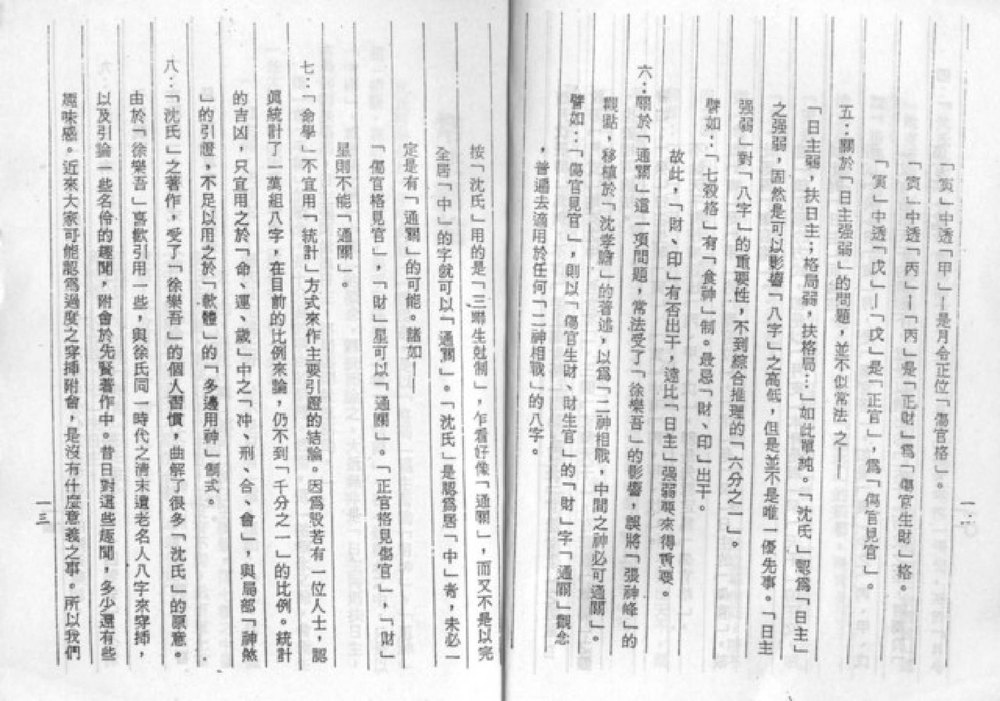 「寅」中透「甲」—是月令正位「傷官格」。
「寅」中透「丙」—「丙」是「正財」爲「傷官生財」格。
「寅」中透「戊」—「戊」是「正官」，爲「傷官見官」。
五：關於「日主强弱」的問題，並不似常法 之——
「日主弱，扶日主；格局弱，扶格局…」如此單純。「沈氏」認爲「日主」
之强弱，固然是可以影響「八字」之高低，但是並不是唯一優先事。「日主
强弱」對「八字」的重要性，不到綜合推理的「六分之一」。
譬如：「七殺格」有「食神」制。最忌「財、印」出干。
故此，「財、印」有否出干，遠比「日主」强弱要來得重要。
六：關於「通關」這一項問題，常法受了「徐樂吾」的影響，誤將「張神峰」的
觀點，移植於「沈孝瞻」的著述，以爲「二神相戰，中間之神必可通關」。
譬如：「傷官見官」，則以「傷官生財、財生官」的「財」字「通關」觀念
，普遍去適用於任何「二神相戰」的八字。
按「沈氏」用的是「三聯生尅制」，乍看好像「通關」，而又不是以完
全居「中」的字就可以「通關」。「沈氏」是認爲居「中」者，未必一
定是有「通關」的可能。諸如——
「傷官格見官」，「財」星可以「通關」。「正官格見傷官」，「財」
星則不能「通關」。
七：「命學」不宜用「統計」方式來作主要引證的結論。因爲設若有一位人士，認
眞統計了一萬組八字，在目前的比例來論，仍不到「千分之一」的比例。統計
的吉凶，只宜用之於「命、運、歲」中之「冲、刑、合、會」，與局部「神煞
」的引證，不足以用之於「軟體」的「多邊用神」制式。
八：「沈氏」之著作，受了「徐樂吾」的個人習慣，曲解了很多「沈氏」的原意。
由於「徐樂吾」喜歡引用一些，與徐氏同一時代之清末遺老名人八字來穿揷，
以及引論一些名伶的趣聞，附會於先賢著作中。昔日對這些趣聞，多少還有些
趣味感。近來大家可能認爲過度之穿揷附會，是沒有什麽意義之事。所以我們
一三